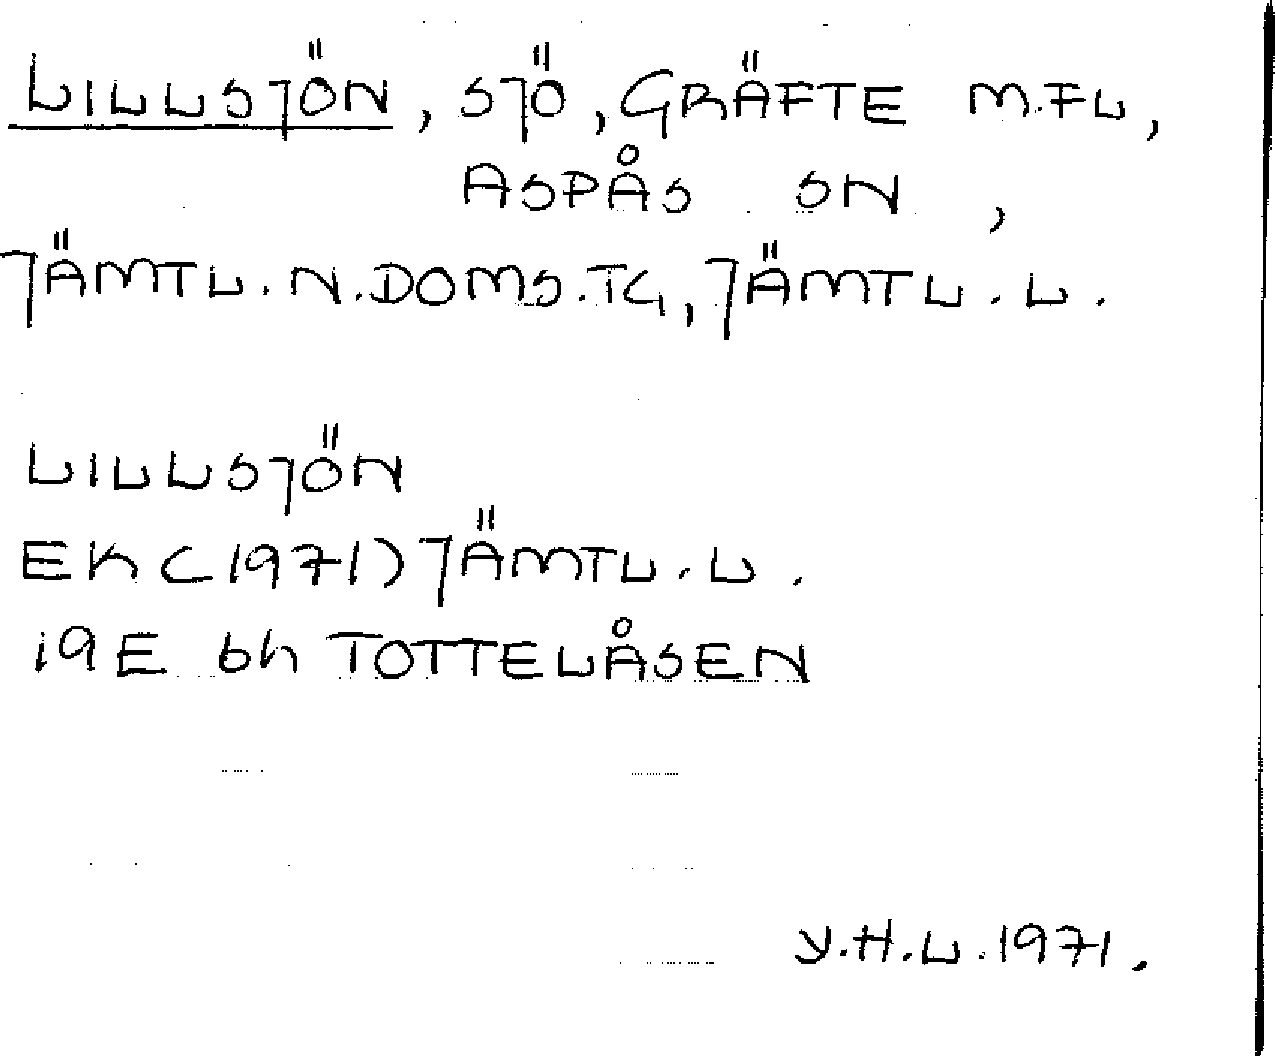 LILLSJÖN, SJÖ, GRÄFTE M.FL,
ASPÅS SN,
JÄMTL.N.DOMS.TG, JÄMTL.L.
LILLSJÖN
EK(1971)JÄMTL.L.
19E 6h TOTTELÅSEN
Y.H.L.1971.